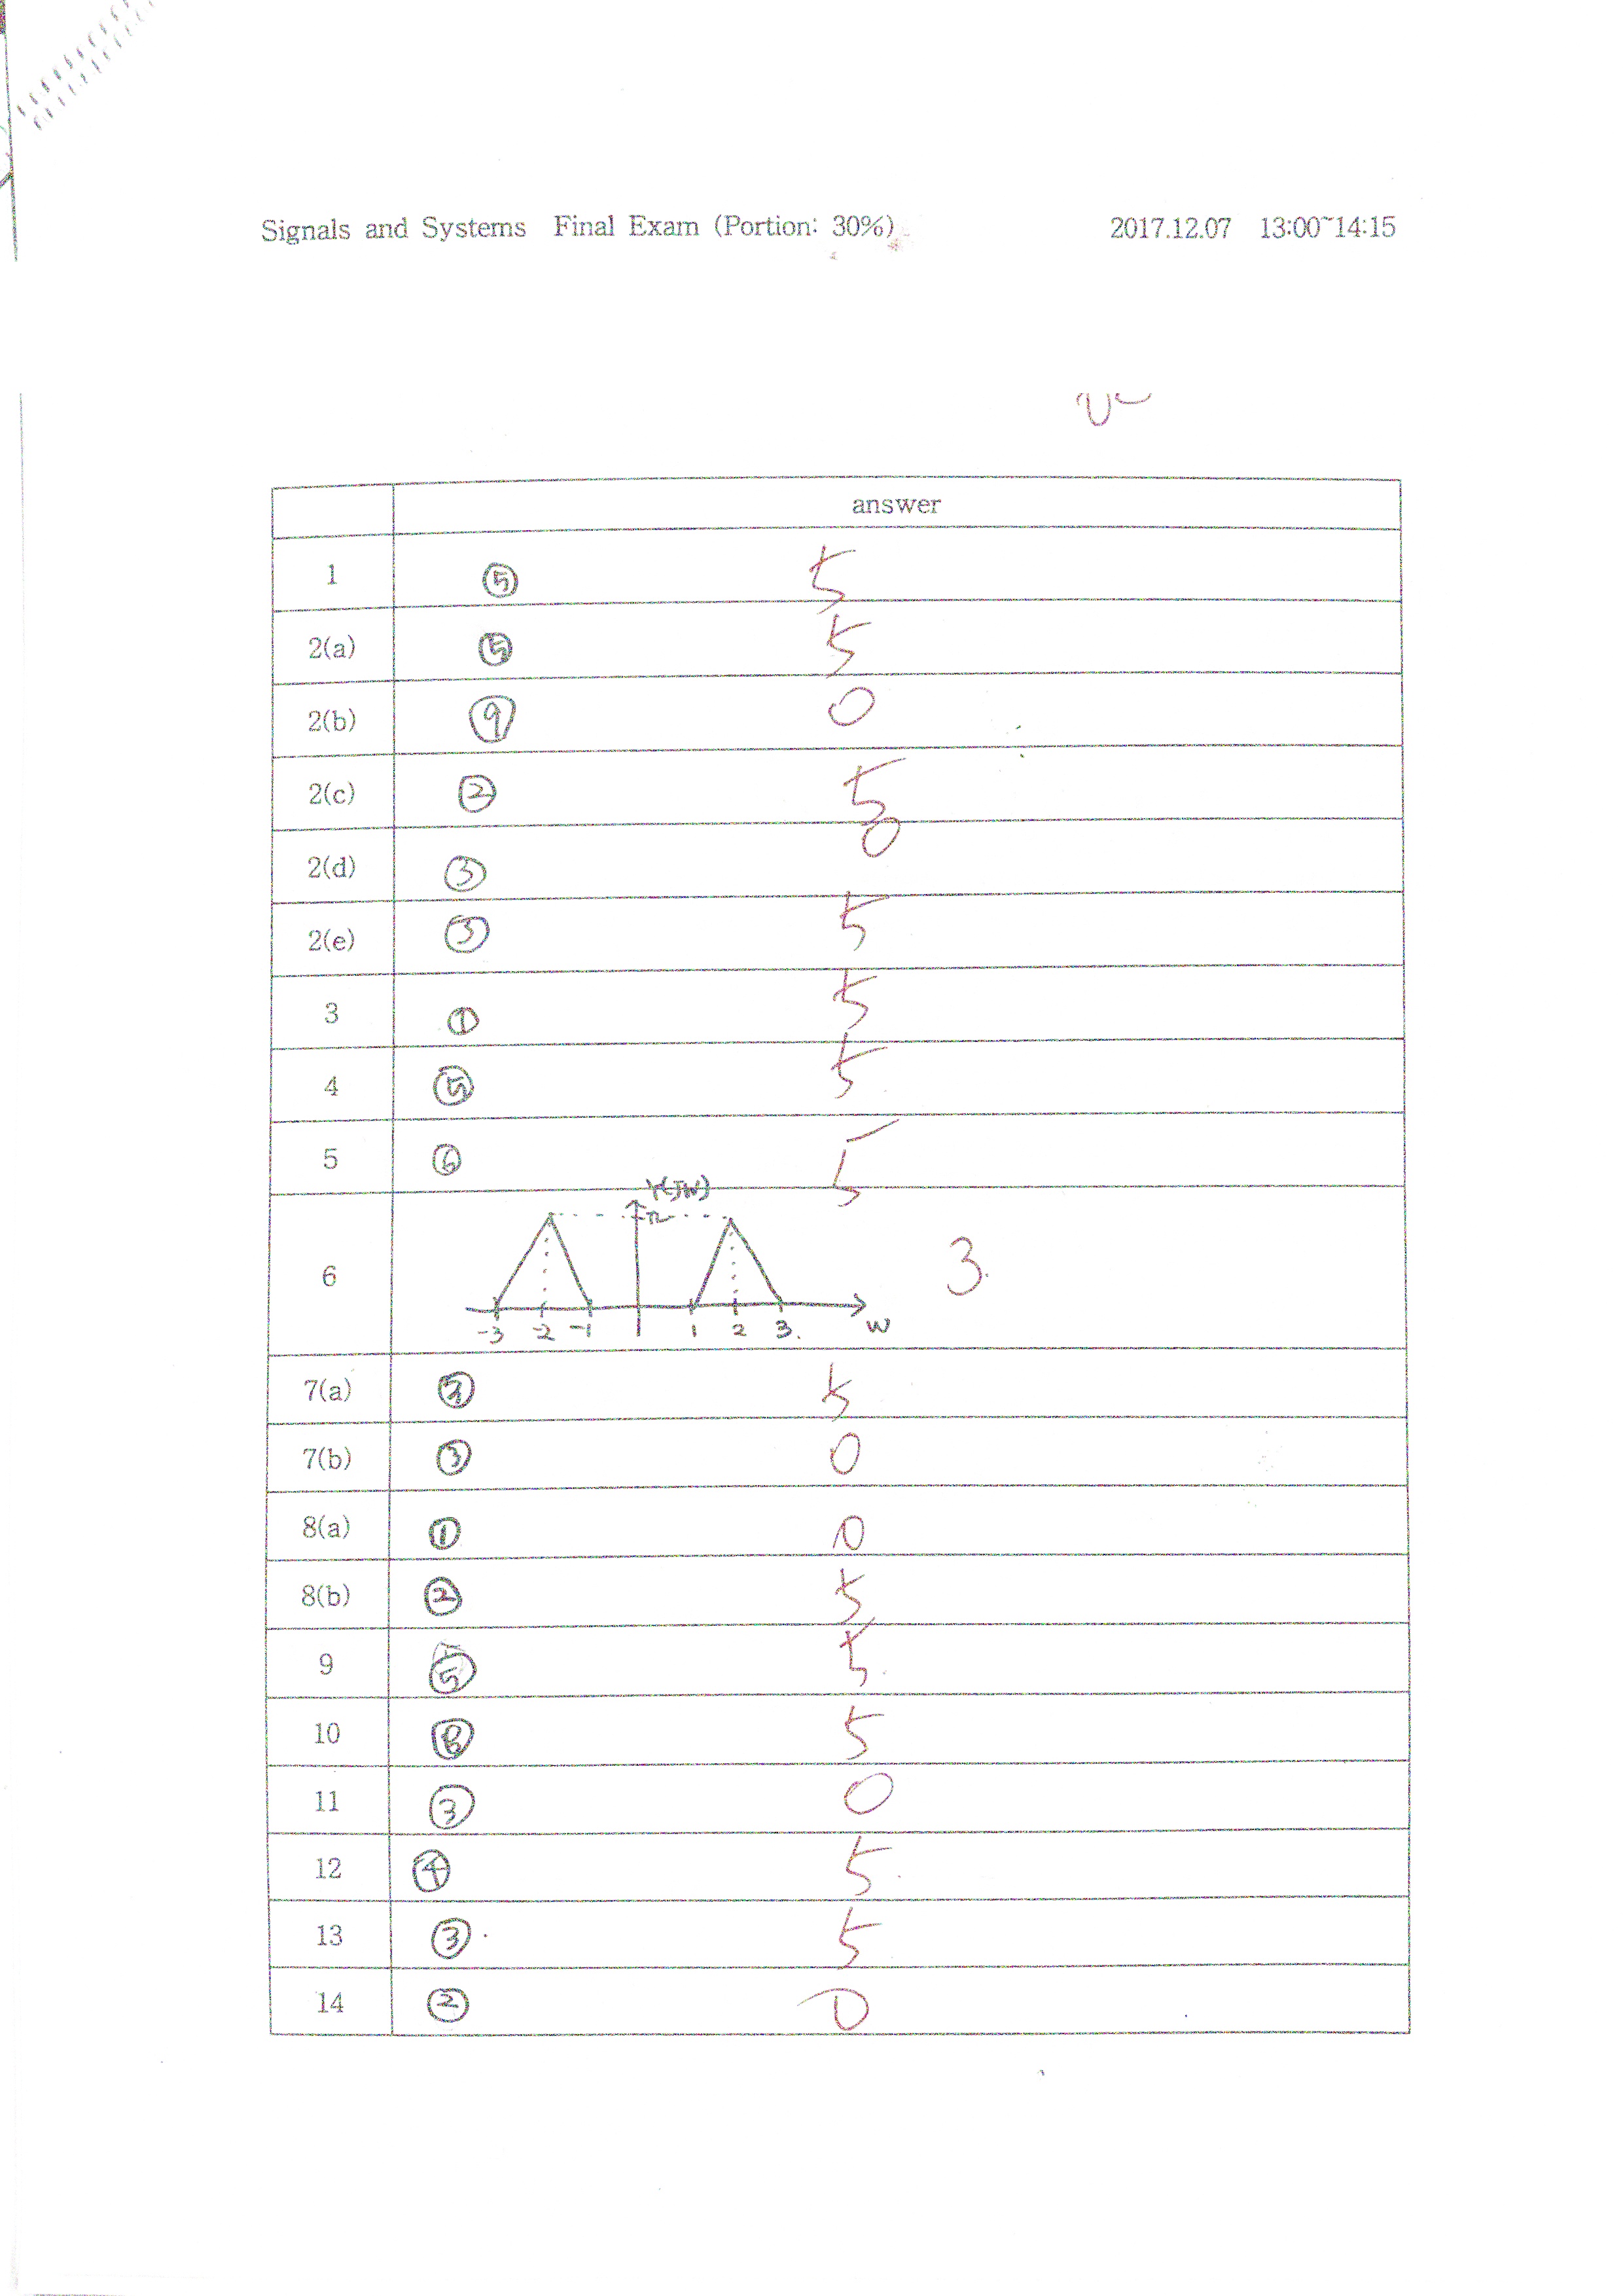 Signals and Systems Final Exam (Portion: 30%) 2017.12.07 13:00~14:15
answer
1 ⑤ 5
2(a) ⑤ 5
2(b) ⑨ 0
2(c) ② 5
2(d) ③ 0
2(e) ③ 5
3 ① 5
4 ⑤ 5
5 ⑥ 5
Y(jw)
π
6 3.
-3 -2 -1 1 2 3. w
7(a) 5
7(b) ③ 0
8(a) ① 0
8(b) ② 5
9 ⑤ 5
10 5
11 ③ 0
12 ④ 5
13 ③ 5
14 ② 0